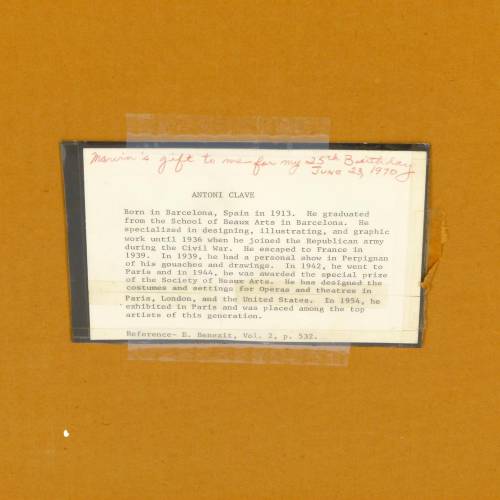 Marvin's gift to me for my 25th Birthday
JUNE 23, 1970
ANTONI CLAVE
Born in Barcelona, Spain in 1913. He graduated
from the School of Beaux Arts in Barcelona. He
specialized in designing, illustrating, and graphic
work until 1936 when he joined the Republican army
during the Civil War. He escaped to France in
1939. In 1939, he had a personal show in Perpignan
of his gouaches and drawings. In 1942, he went to
Paris and in 1944, he was awarded the special prize
of the Society of Beaux Arts. He has designed the
costumes and settings for Operas and theatres in
Paris, London, and the United States. In 1954, he
exhibited in Paris and was placed among the top
artists of this generation.
Reference- E. Benezit, Vol. 2, p. 532.